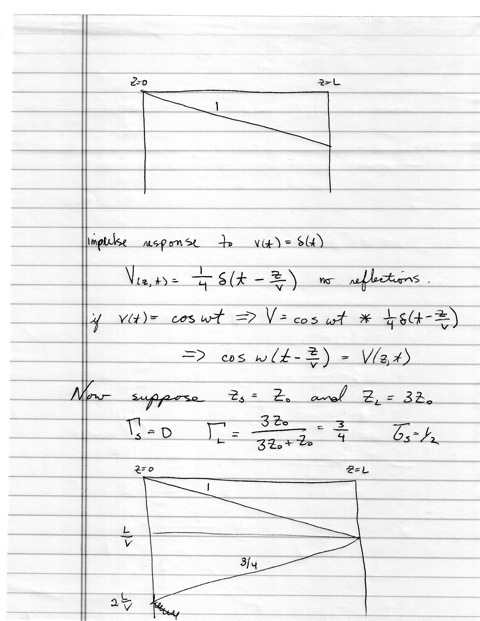 z=0 z=L
1
impulse response to v(t) = δ(t)
V(z,t) = 1/4 δ(t - z/v) no reflections.
if v(t) = cos wt ⇒ V = cos wt * 1/4 δ(t - z/v)
⇒ cos w(t - z/v) = V(z,t)
Now suppose Zs = Z₀ and ZL = 3Z₀
Γs = 0 ΓL = 3Z₀/(3Z₀ + Z₀) = 3/4 τs = 1/2
z=0 z=L
1
L/v
3/4
2L/v